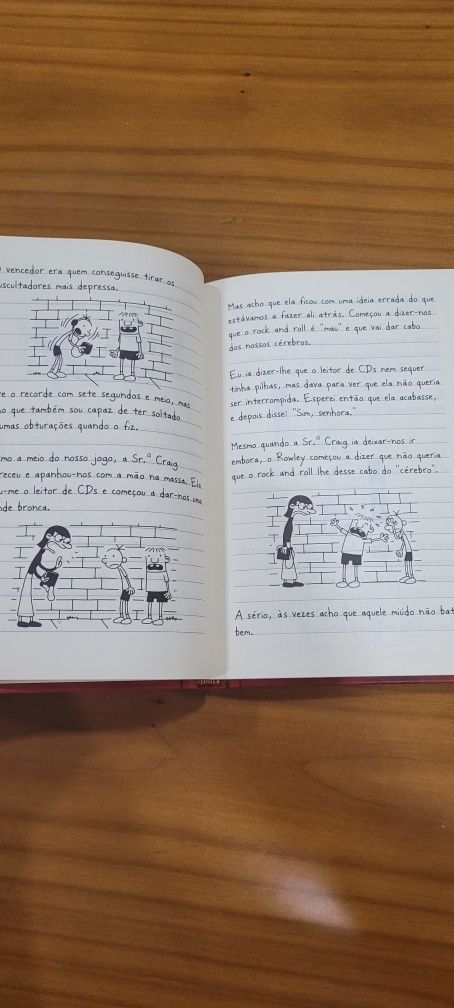 vencedor era quem conseguisse tirar os
auscultadores mais depressa.
o recorde com sete segundos e meio, mas
que também sou capaz de ter soltado
umas obturações quando o fiz.
a meio do nosso jogo, a Sr.ª Craig
e apanhou-nos com a mão na massa. Ela
o leitor de CDs e começou a dar-nos uma
bronca.
Mas acho que ela ficou com uma ideia errada do que
estávamos a fazer ali atrás. Começou a dizer-nos
que o rock and roll é "mau" e que vai dar cabo
dos nossos cérebros.
Eu ia dizer-lhe que o leitor de CDs nem sequer
tinha pilhas, mas dava para ver que ela não queria
ser interrompida. Esperei então que ela acabasse,
e depois disse: "Sim, senhora."
Mesmo quando a Sr.ª Craig ia deixar-nos ir
embora, o Rowley começou a dizer que não queria
que o rock and roll lhe desse cabo do "cérebro".
A sério, às vezes acho que aquele miúdo não
bem.